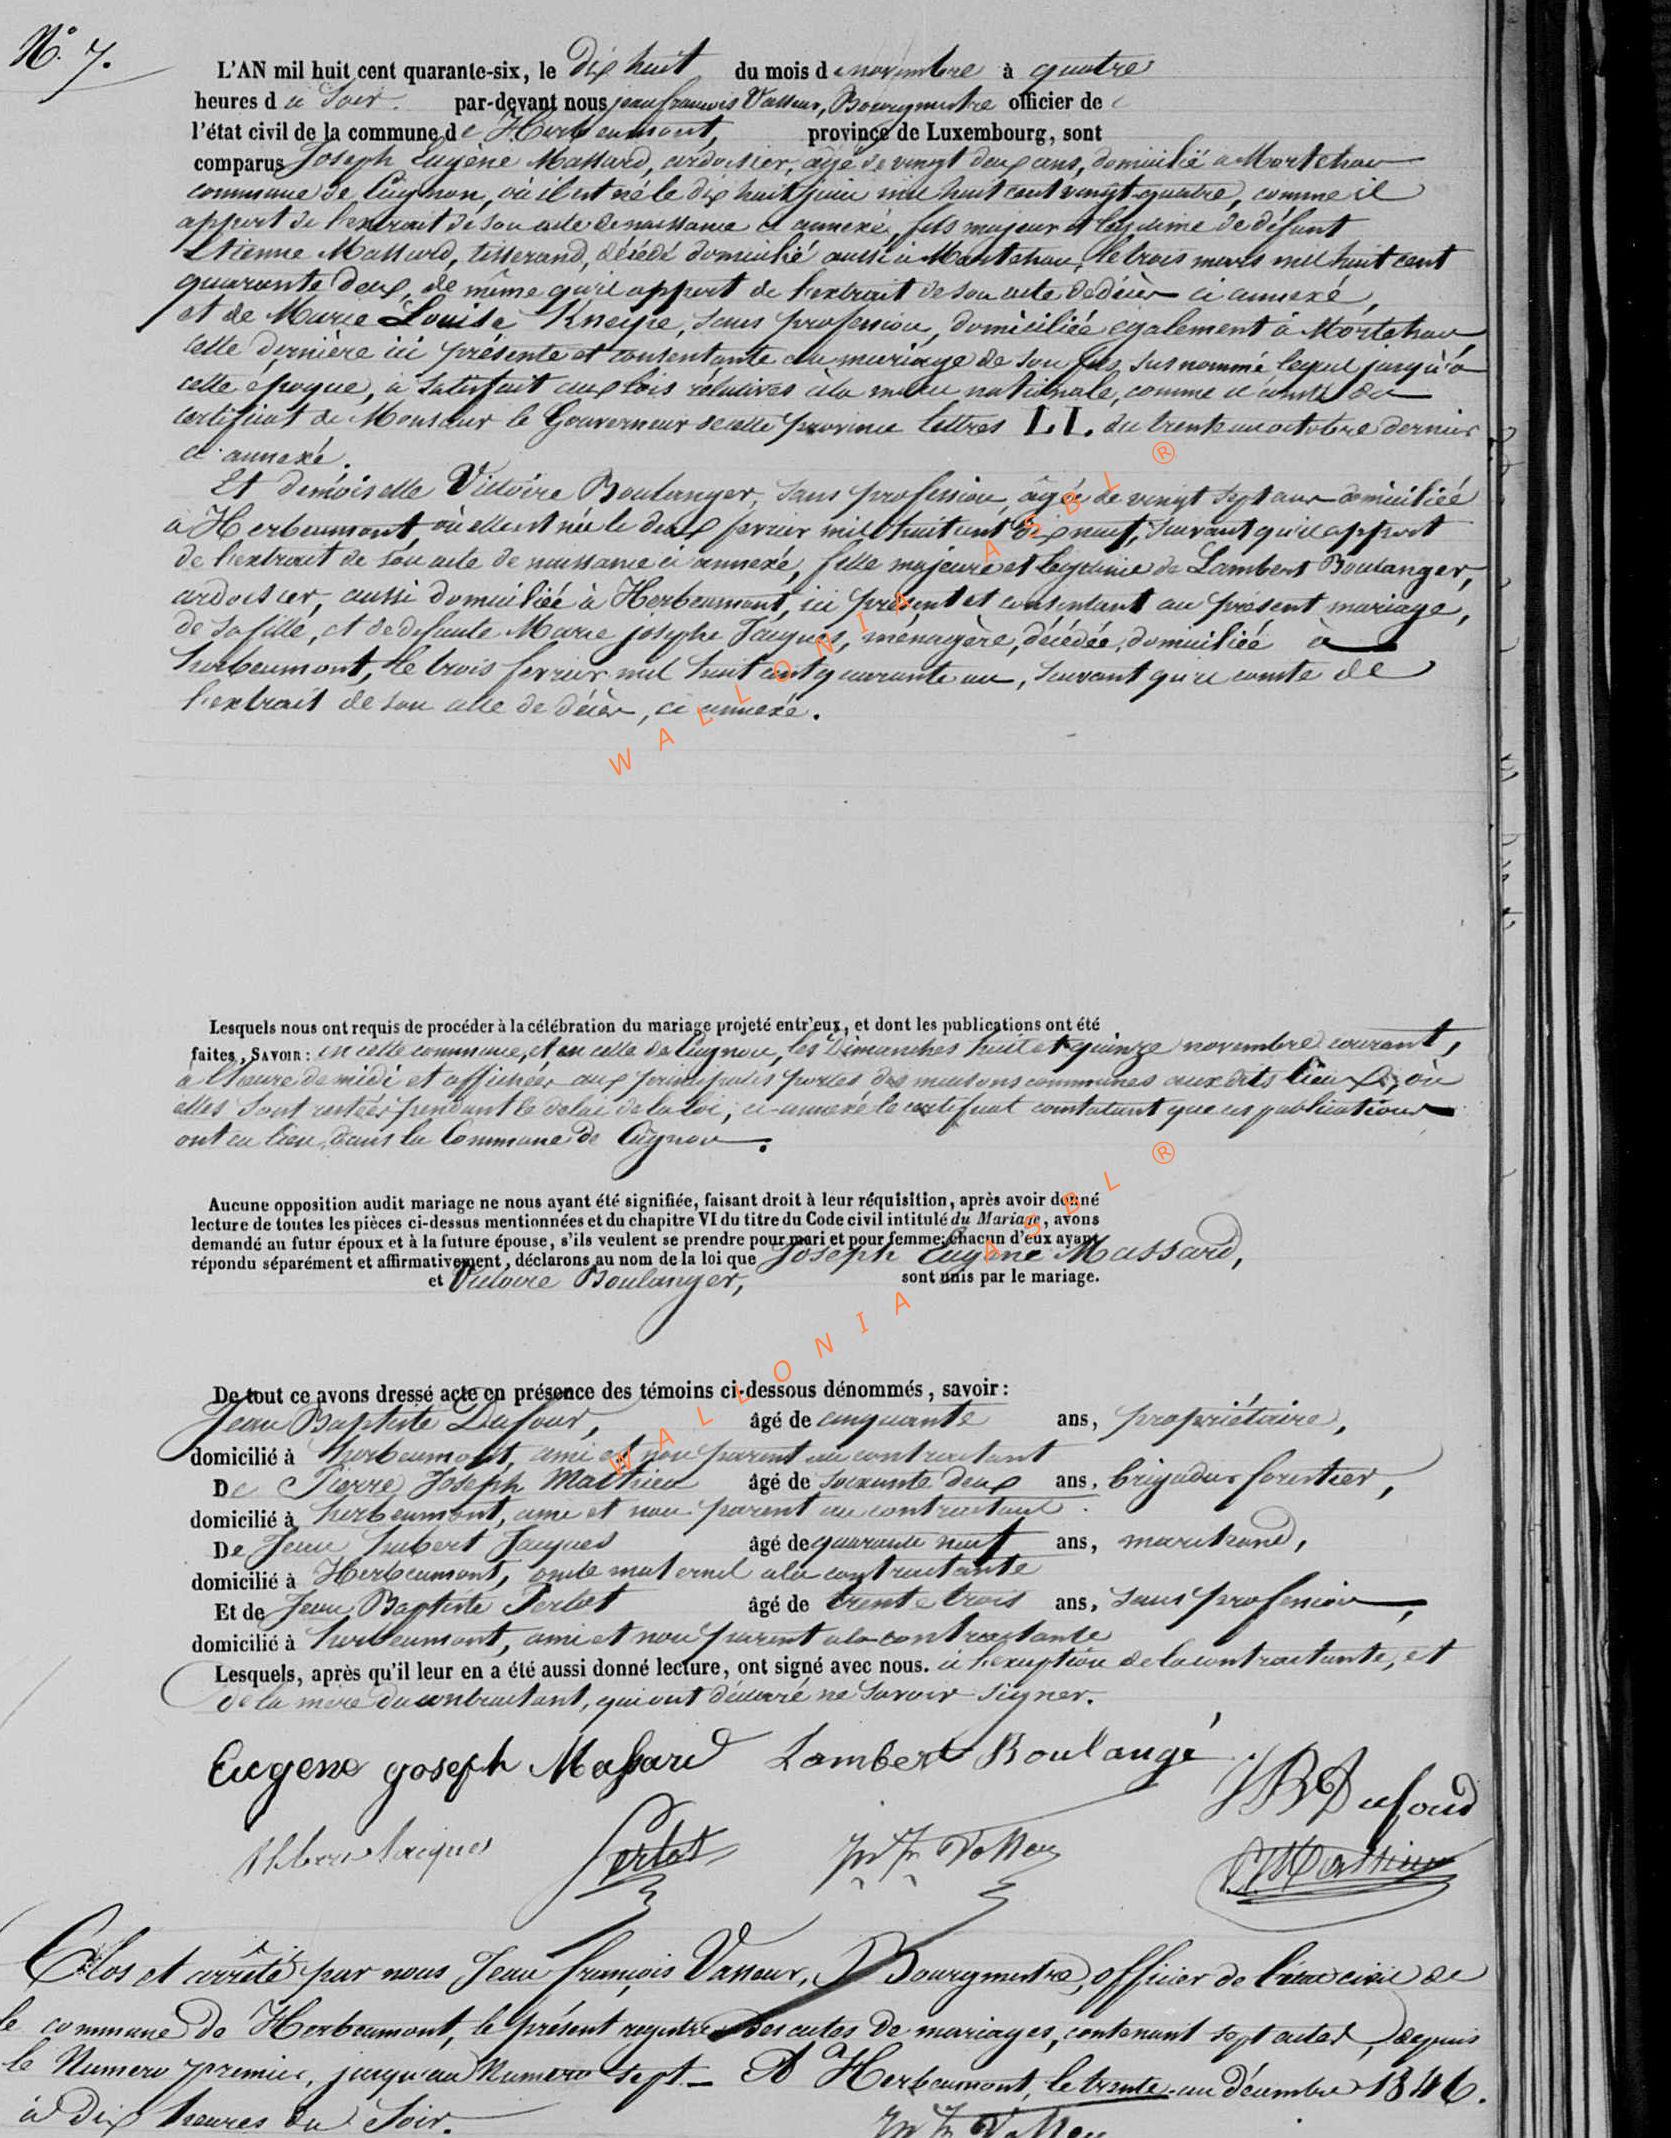 N° 7.
L'AN mil huit cent quarante-six, le dix huit du mois de novembre à quatre
heures du Soir. par-devant nous jean françois Vasseur, Bourgmestre officier de
l'état civil de la commune de Herbeumont, province de Luxembourg, sont
comparus Joseph Eugène Massard, ardoisier, âgé de vingt deux ans, domicilié à Mortehan
commune de Cugnon, où il est né le dix huit juin mil huit cent vingt-quatre, comme il
appert de l'extrait de son acte de naissance ci annexé, fils majeur et légitime de défunt
Etienne Massard, tisserand, décédé domicilié aussi à Mortehan, le trois mars mil huit cent
quarante deux, de même qu'il appert de l'extrait de son acte de décès ci annexé,
et de Marie Louise Kneipe, sans profession, domiciliée également à Mortehan,
cette dernière ici présente et consentante au mariage de son fils, sus nommé lequel jusqu'à
cette époque, a satisfait aux lois rélatives à la milice nationale, comme il conste du
certificat de Monsieur le Gouverneur de cette province lettres LI. du trente un octobre dernier
ci annexé.
Et demoiselle Victoire Boulanger, sans profession, âgée de vingt sept ans domiciliée
à Herbeumont, où elle est née le deux février mil huit cent dix neuf, suivant qu'il appert
de l'extrait de son acte de naissance ci annexé, fille majeure et légitime de Lambert Boulanger,
ardoisier, aussi domiciliée à Herbeumont, ici présent et consentant au présent mariage,
de sa fille, et de défunte Marie josephe Jacques, ménagère, décédée, domiciliée à
herbeumont, le trois fevrier mil huit cent quarante un, suivant qu'il conste de
l'extrait de son acte de décès, ci annexé.
WALLONIA ASBL ®
Lesquels nous ont requis de procéder à la célébration du mariage projeté entr'eux, et dont les publications ont été
faites, SAVOIR : en cette commune, et en celle de Cugnon, les Dimanches huit et quinze novembre courant,
à l'heure de midi et affichées aux principales portes des maisons communes aux dits lieux, où
elles sont restées pendant le délai de la loi, ci-annexé le certificat constatant que ces publications
ont eu lieu, dans la Commune de Cugnon.
Aucune opposition audit mariage ne nous ayant été signifiée, faisant droit à leur réquisition, après avoir donné
lecture de toutes les pièces ci-dessus mentionnées et du chapitre VI du titre du Code civil intitulé du Mariage, avons
demandé au futur époux et à la future épouse, s'ils veulent se prendre pour mari et pour femme; chacun d'eux ayant
répondu séparément et affirmativement, déclarons au nom de la loi que Joseph Eugène Massard,
et Victoire Boulanger, sont unis par le mariage.
WALLONIA ASBL ®
De tout ce avons dressé acte en présence des témoins ci-dessous dénommés, savoir :
Jean Baptiste Dufour, âgé de cinquante ans, propriétaire,
domicilié à herbeumont, ami et non parent au contractant
De Pierre Joseph Mathieu âgé de soixante deux ans, brigadier forestier,
domicilié à herbeumont, ami et non parent au contractant.
De Jean hubert Jacques âgé de quarante neuf ans, marchand,
domicilié à Herbeumont, oncle maternel à la contractante
Et de Jean Baptiste Perlot âgé de trente trois ans, sans profession,
domicilié à herbeumont, ami et non parent à la contractante
Lesquels, après qu'il leur en a été aussi donné lecture, ont signé avec nous. à l'exception de la contractante, et
de la mère du contractant, qui ont déclaré ne savoir signer.
Eugene Joseph Massard Lambert Boulangé JB Dufour
Hubert Jacques Perlot Jn Fr Vasseur PJ Mathieu
Clos et arrêté par nous Jean françois Vasseur, Bourgmestre, officier de l'état civil de
le commune de Herbeumont, le présent registre des actes de mariages, contenant sept actes, depuis
le Numero premier, jusqu'au Numero sept - A Herbeumont, le trente-un décembre 1846.
à dix heures du Soir.
Jn Fr Vasseur